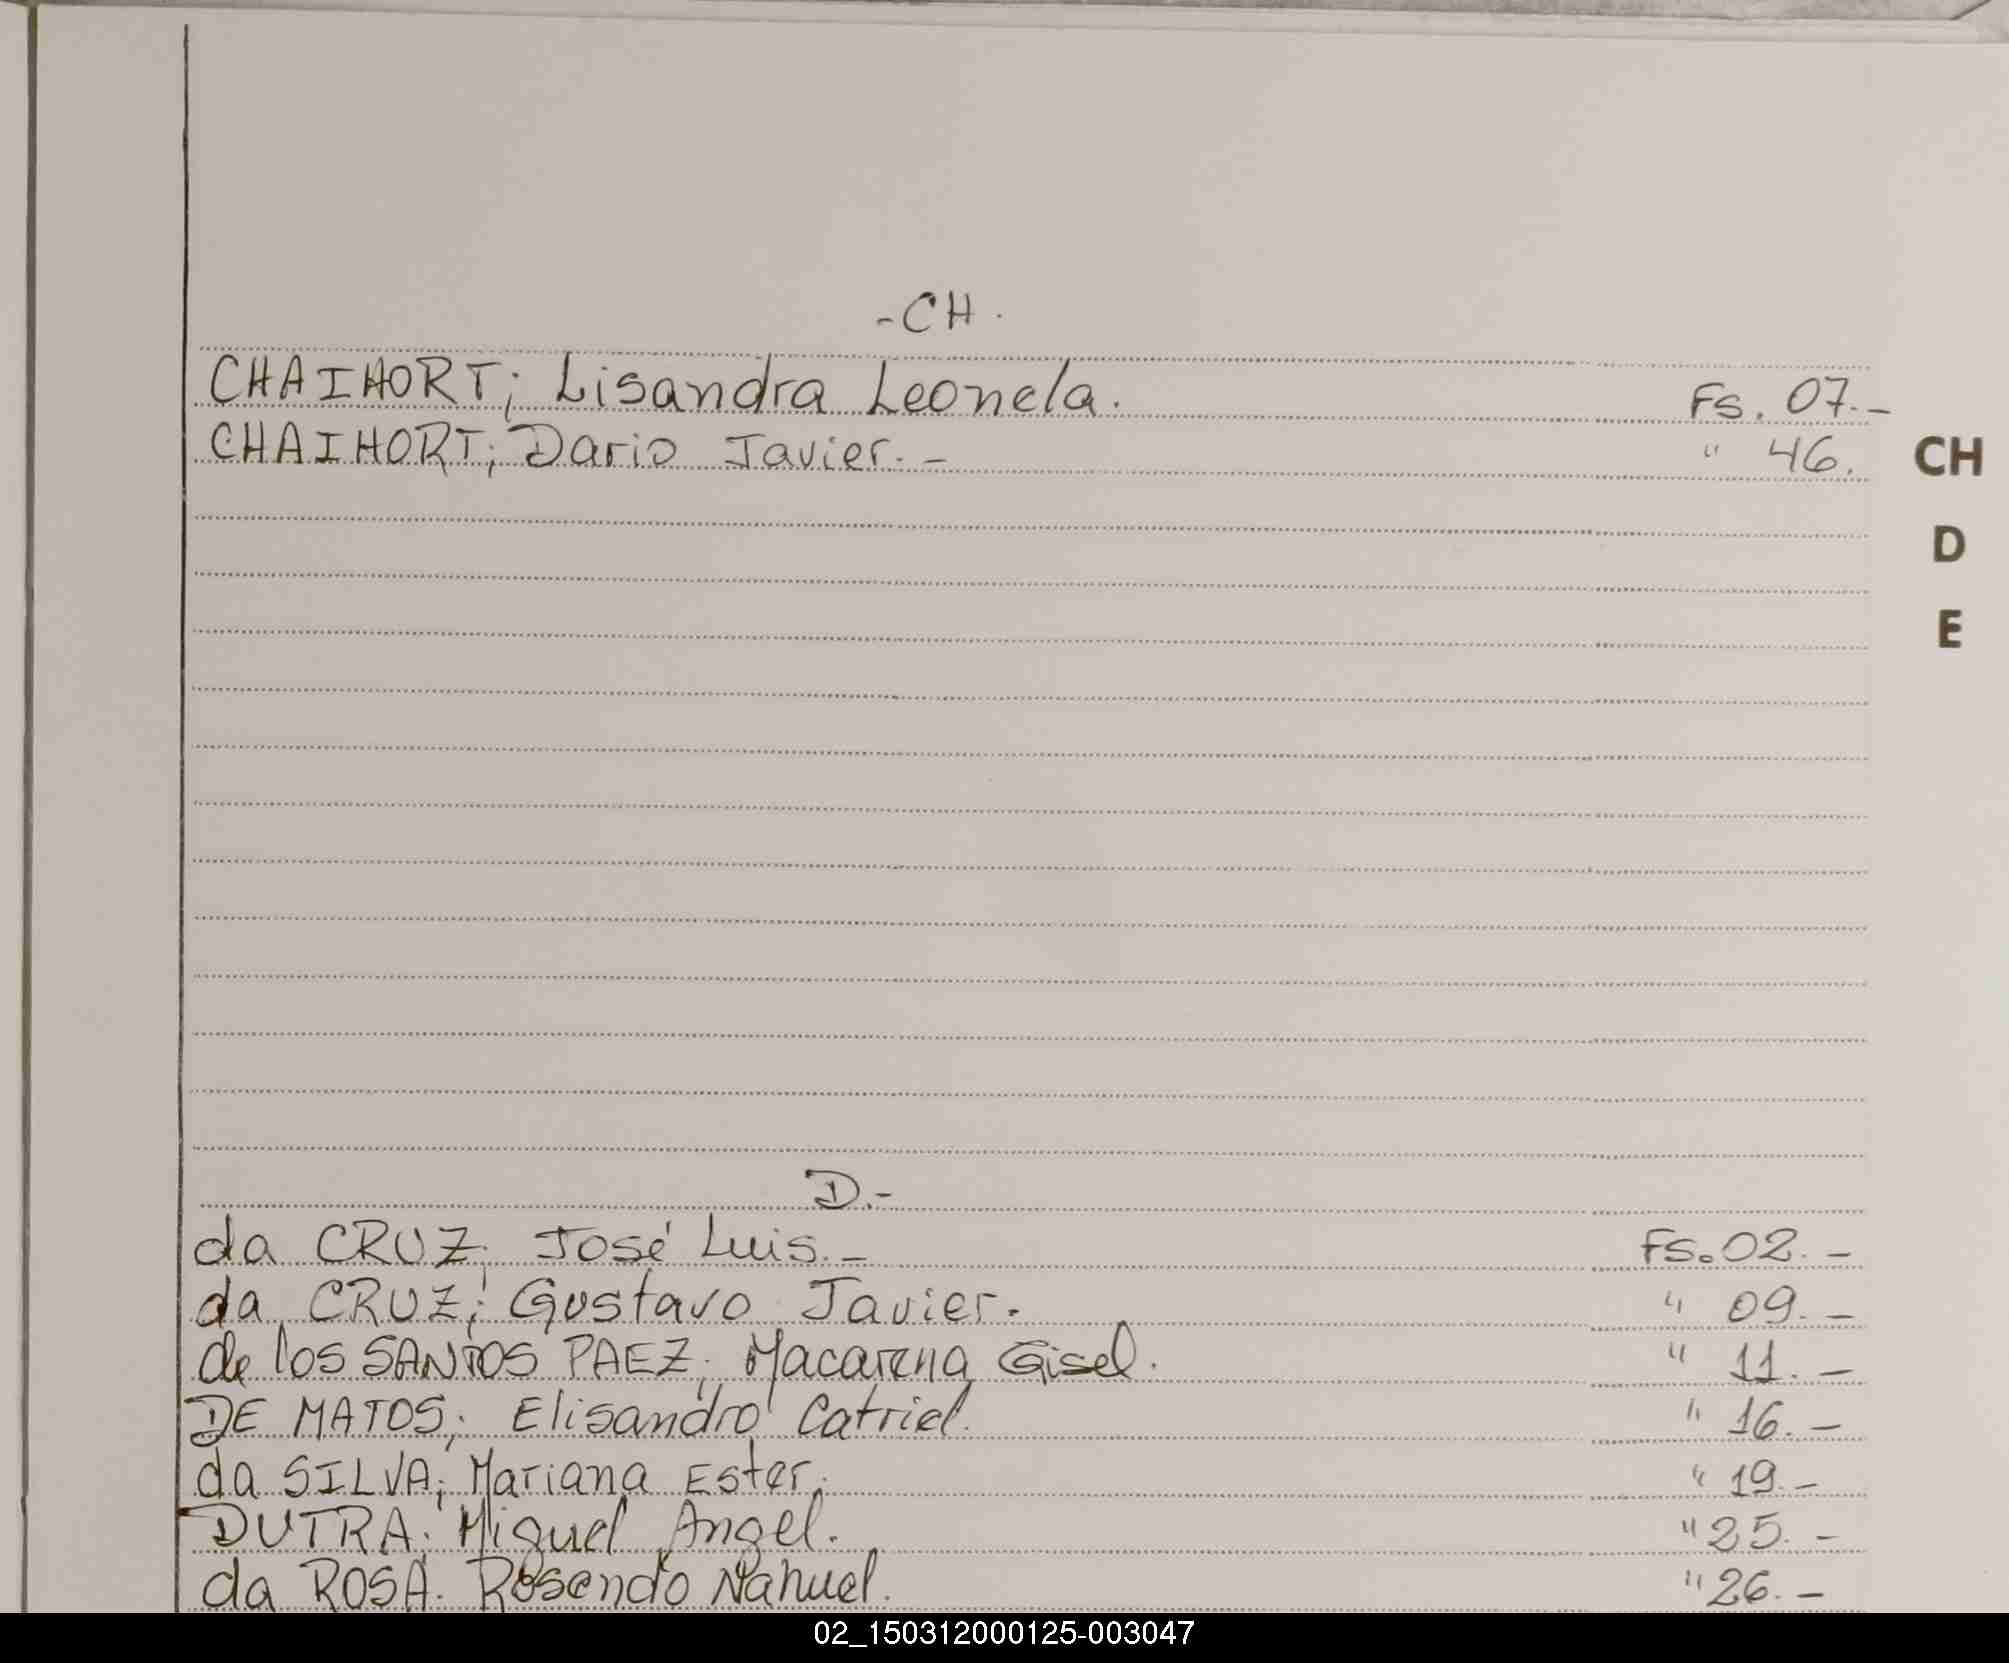 -CH.
CHAIHORT; Lisandra Leonela. Fs. 07.-
CHAIHORT; Dario Javier.- " 46.
CH
D
E
D.-
da CRUZ; José Luis.- Fs. 02.-
da CRUZ; Gustavo Javier. " 09.-
de los SANTOS PAEZ; Macarena Gisel. " 11.-
DE MATOS; Elisandro Catriel. " 16.-
da SILVA; Mariana Ester. " 19.-
DUTRA; Miguel Angel. " 25.-
da ROSA. Rosendo Nahuel. " 26.-
02_150312000125-003047